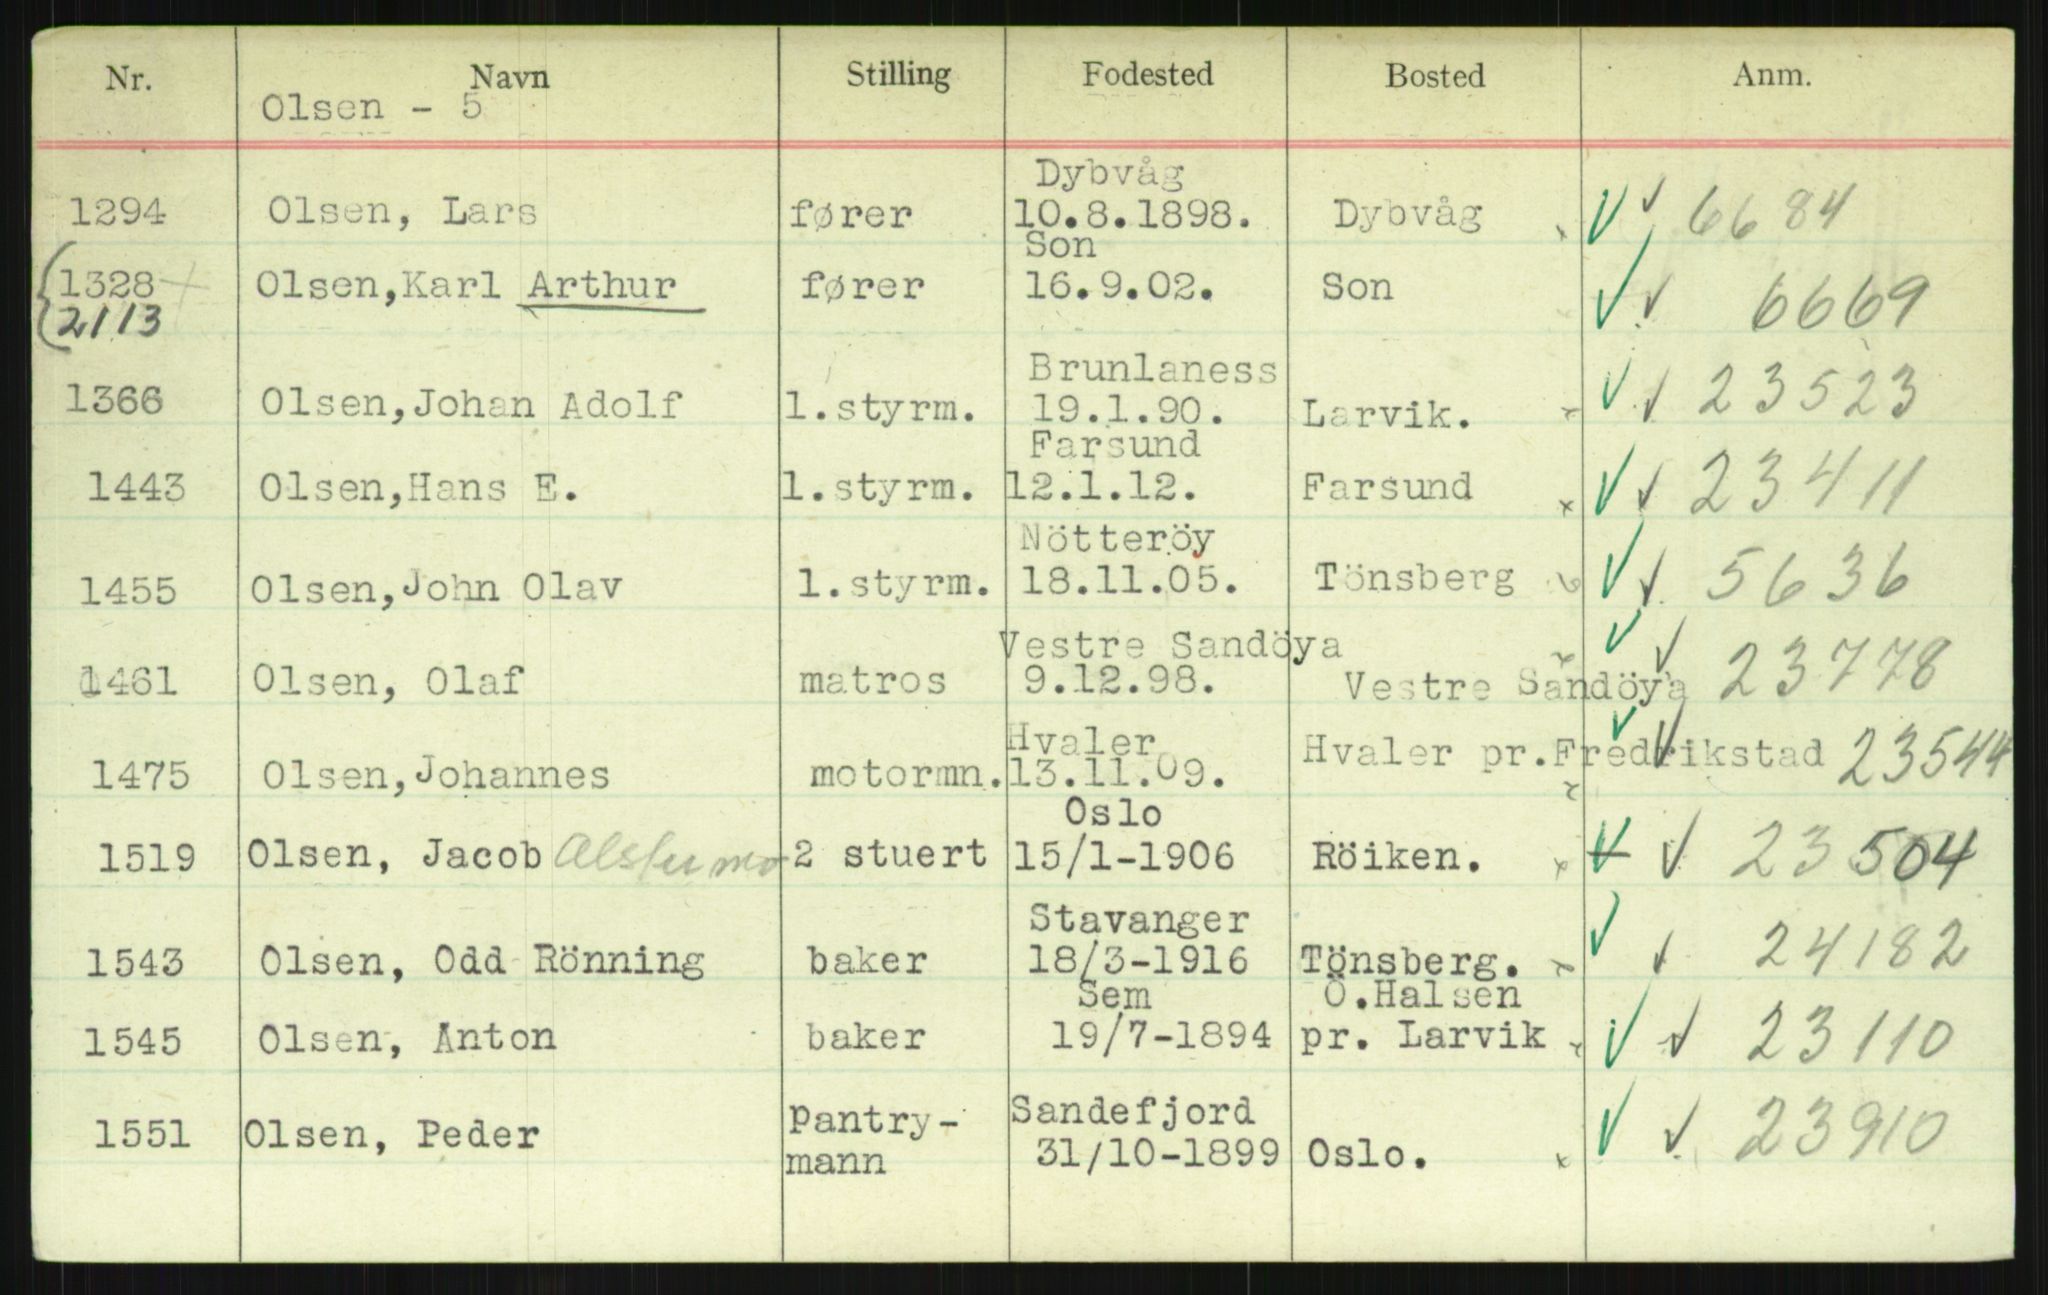 Nr. Navn Stilling Fodested Bosted Anm.
Olsen - 5
Dybvåg
1294 Olsen, Lars fører 10.8.1898. Dybvåg 6684
Son
1328 Olsen,Karl Arthur fører 16.9.02. Son 6669
2113
Brunlaness
1366 Olsen,Johan Adolf 1.styrm. 19.1.90. Larvik. 23523
Farsund
1443 Olsen,Hans E. 1.styrm. 12.1.12. Farsund 23411
Nötteröy
1455 Olsen,John Olav 1.styrm. 18.11.05. Tönsberg 5636
Vestre Sandöya
1461 Olsen, Olaf matros 9.12.98. Vestre Sandöya 23778
Hvaler
1475 Olsen,Johannes motormn. 13.11.09. Hvaler pr.Fredrikstad 23544
Oslo
1519 Olsen, Jacob 2 stuert 15/1-1906 Röiken. 23504
Stavanger
1543 Olsen, Odd Rönning baker 18/3-1916 Tönsberg. 24182
Sem Ö.Halsen
1545 Olsen, Anton baker 19/7-1894 pr. Larvik 23110
pantry- Sandefjord
1551 Olsen, Peder mann 31/10-1899 Oslo. 23910